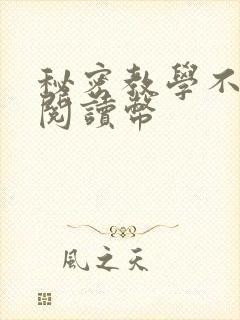 秘密教學不
閱讀幣
風之天